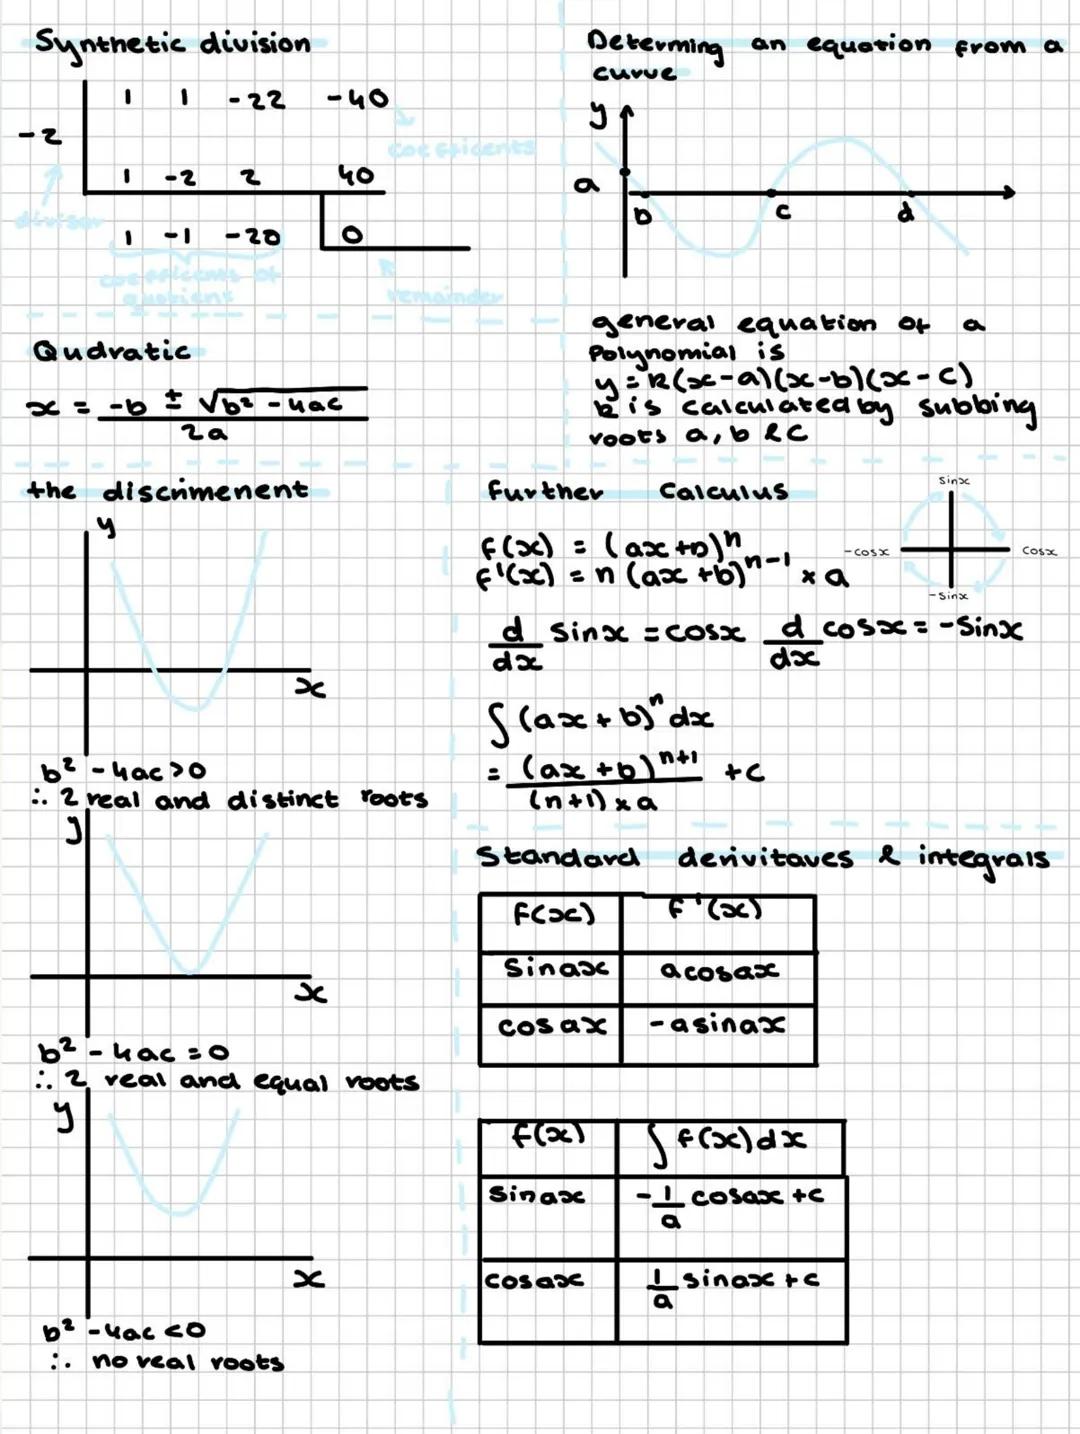 Synthetic division
1 1 -22 -40
-2
coefficents
1 -2 2 40
divisor
1 -1 -20 0
coefficents of
quotient
remainder
Qudratic
x = -b ± √b² - 4ac
2a
the discrimenent
y
x
b² - 4ac > 0
∴ 2 real and distinct roots
y
x
b² - 4ac = 0
∴ 2 real and equal roots
y
x
b² - 4ac < 0
∴ no real roots
Determing an equation from a
curve
y
a
b c d
general equation of a
Polynomial is
y = k(x-a)(x-b)(x-c)
k is calculated by subbing
roots a, b & c
Further Calculus
sinx
-cosx cosx
-sinx
f(x) = (ax+b)ⁿ
f'(x) = n(ax+b)ⁿ⁻¹ × a
d/dx sinx = cosx d/dx cosx = -sinx
∫(ax+b)ⁿdx
= (ax+b)ⁿ⁺¹ + c
(n+1) × a
Standard derivitaves & integrals
f(x) f'(x)
sinax acosax
cosax -asinax
f(x) ∫f(x)dx
sinax -1/a cosax + c
cosax 1/a sinax + c